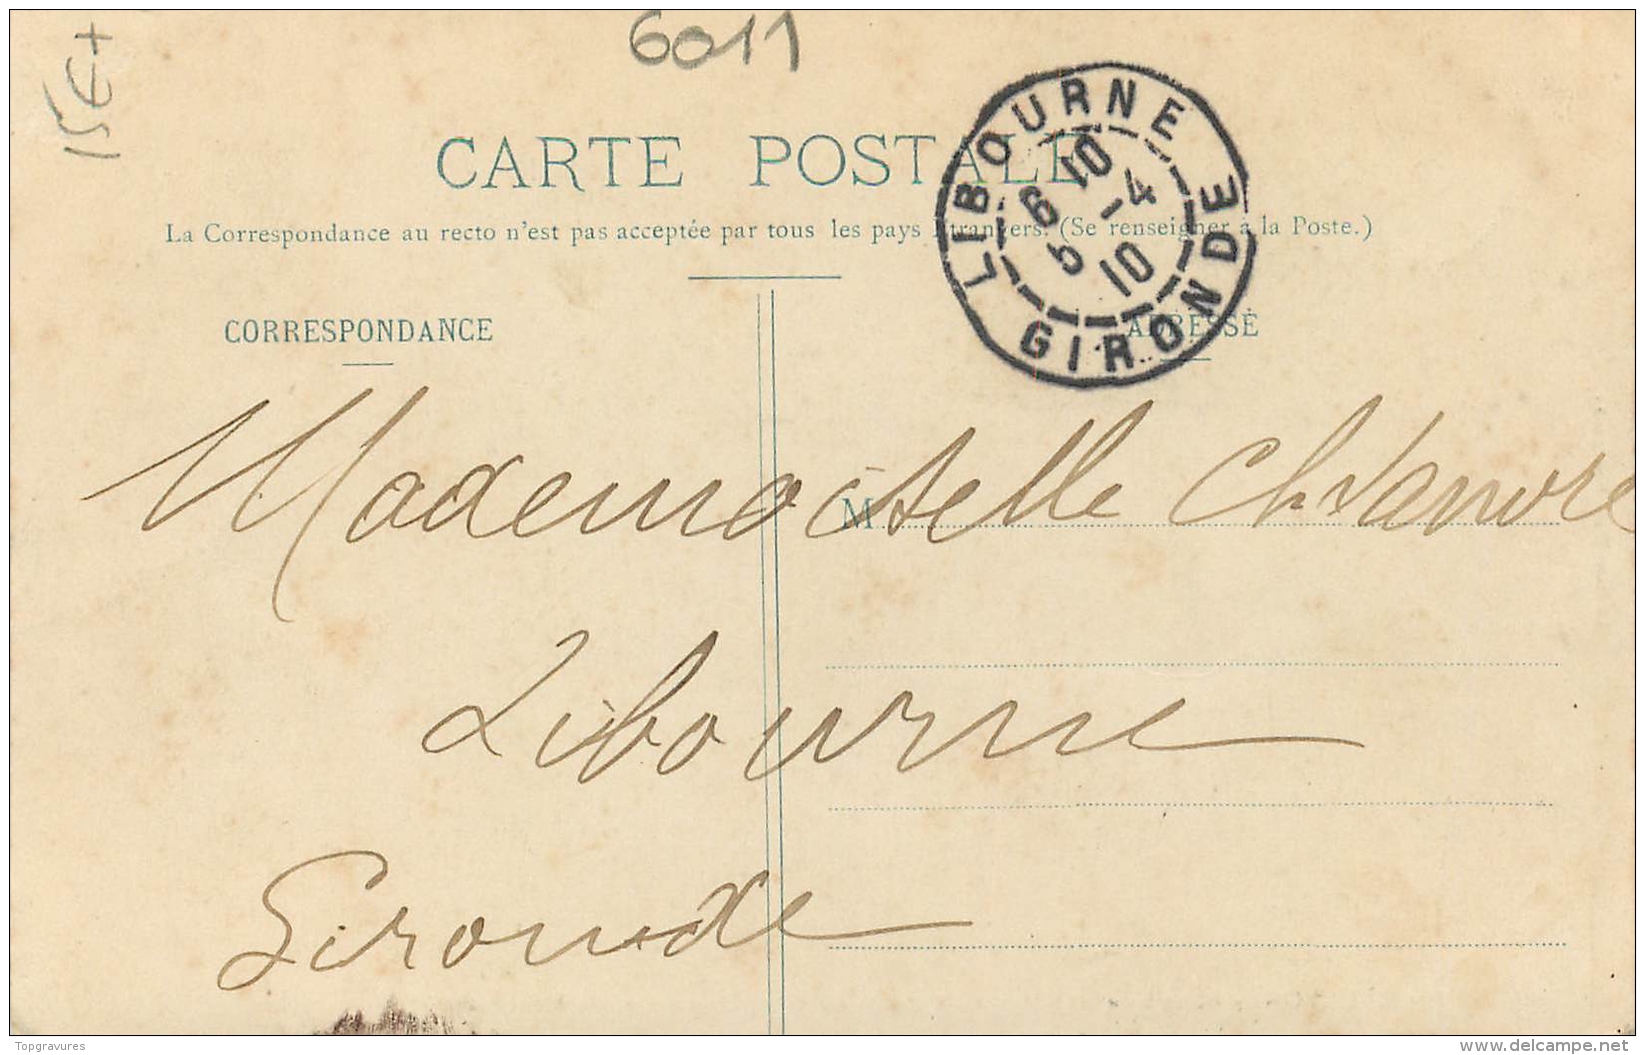 15€+
6011
CARTE POSTALE
La Correspondance au recto n'est pas acceptée par tous les pays étrangers. (Se renseigner à la Poste.)
LIBOURNE
6 10
6 -4
10
GIRONDE
CORRESPONDANCE
ADRESSE
M
Mademoiselle
Libourne
Gironde
Topgravures
www.delcampe.net